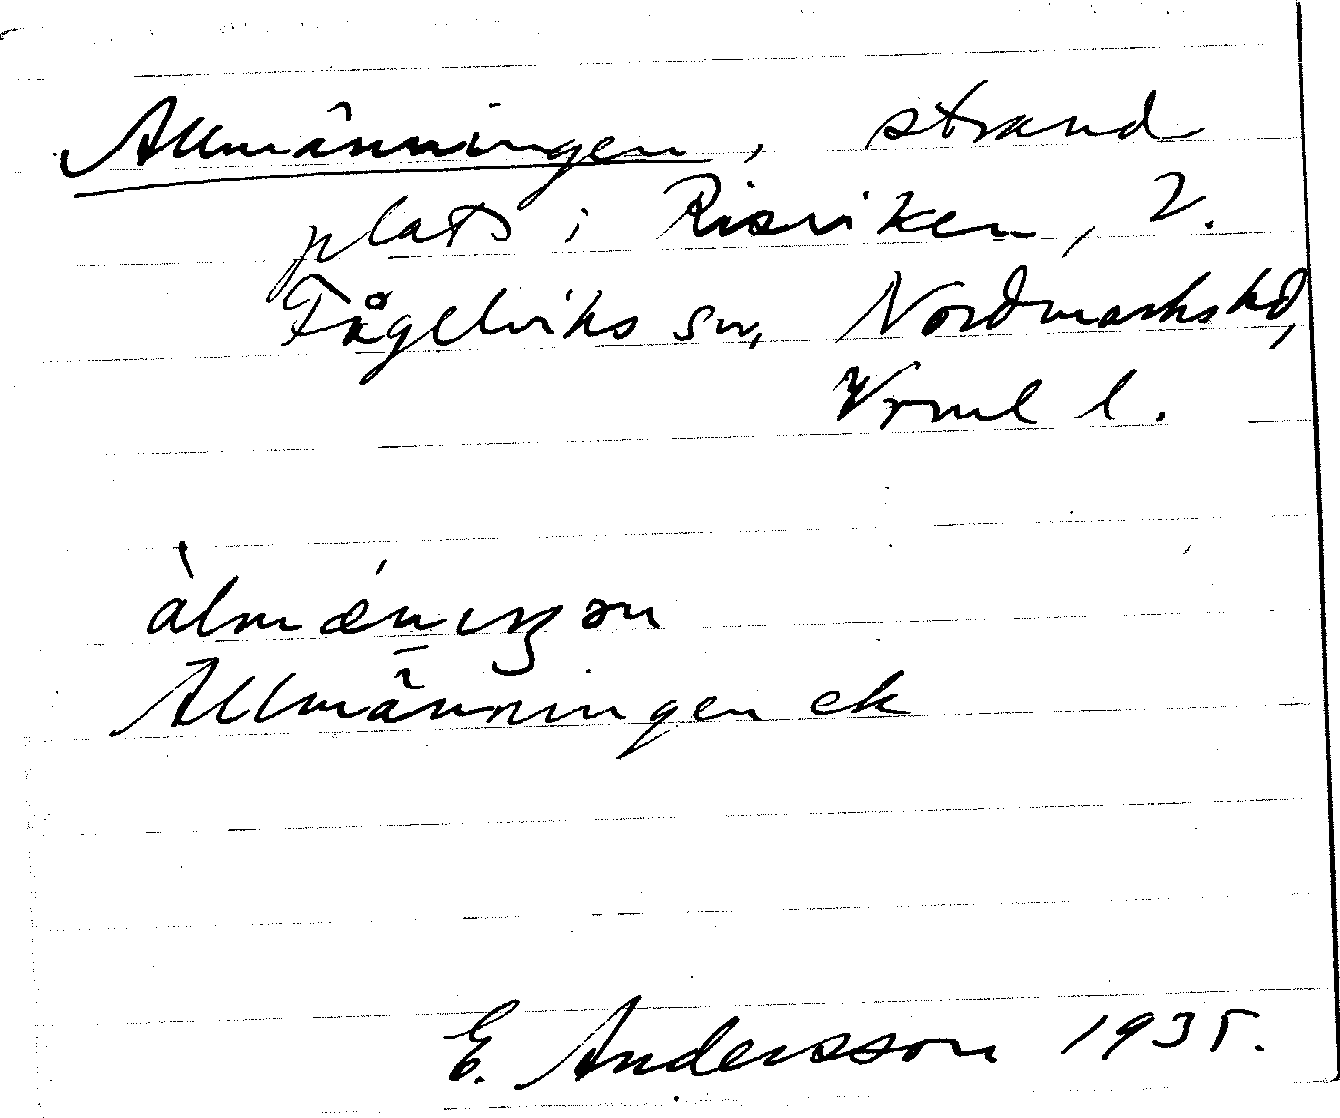 Allmänningen, strand
plats i Risviken, V.
Fågelviks sn, Nordmarks hd,
Vrml l.
àlmǽnıŋən
Allmänningen ek
E. Andersson 1935.